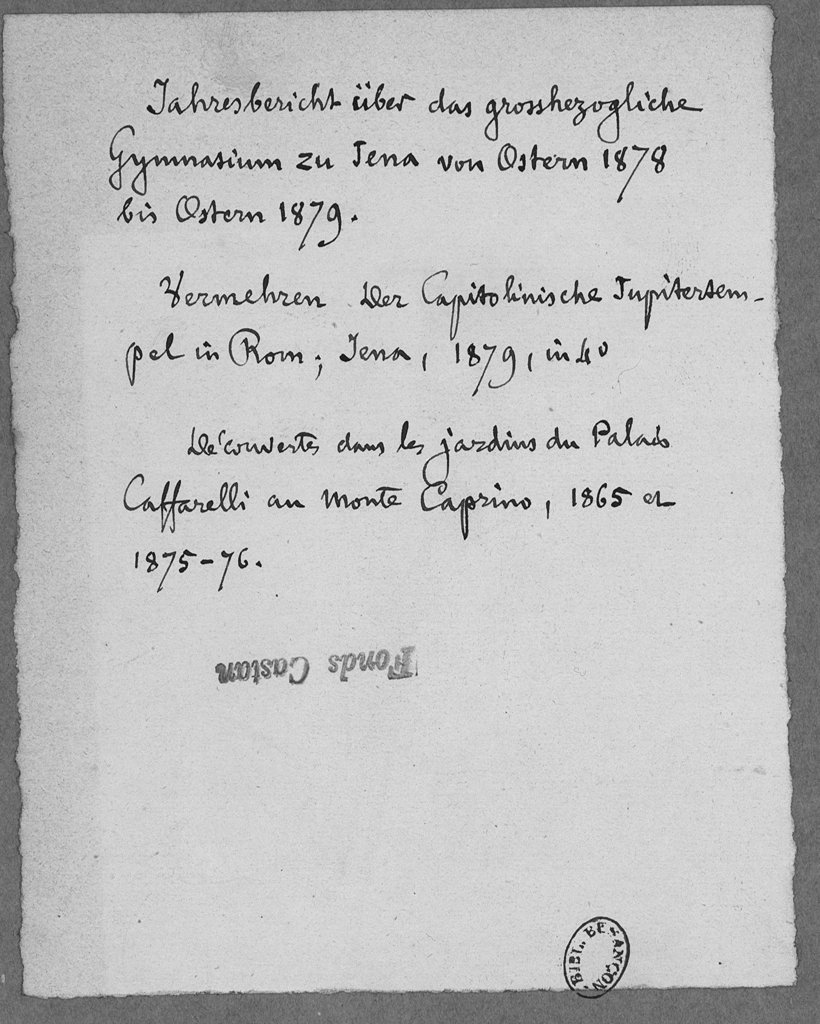 Jahresbericht über das grosshezogliche
Gymnasium zu Jena von Ostern 1878
bis Ostern 1879.
Vermehren Der Capitolinische Jupitertem-
pel in Rom; Jena, 1879, in 4º
Découvertes dans les jardins du Palais
Caffarelli au Monte Caprino, 1865 et
1875-76.
Fonds Castan
BIBL. BESANÇON